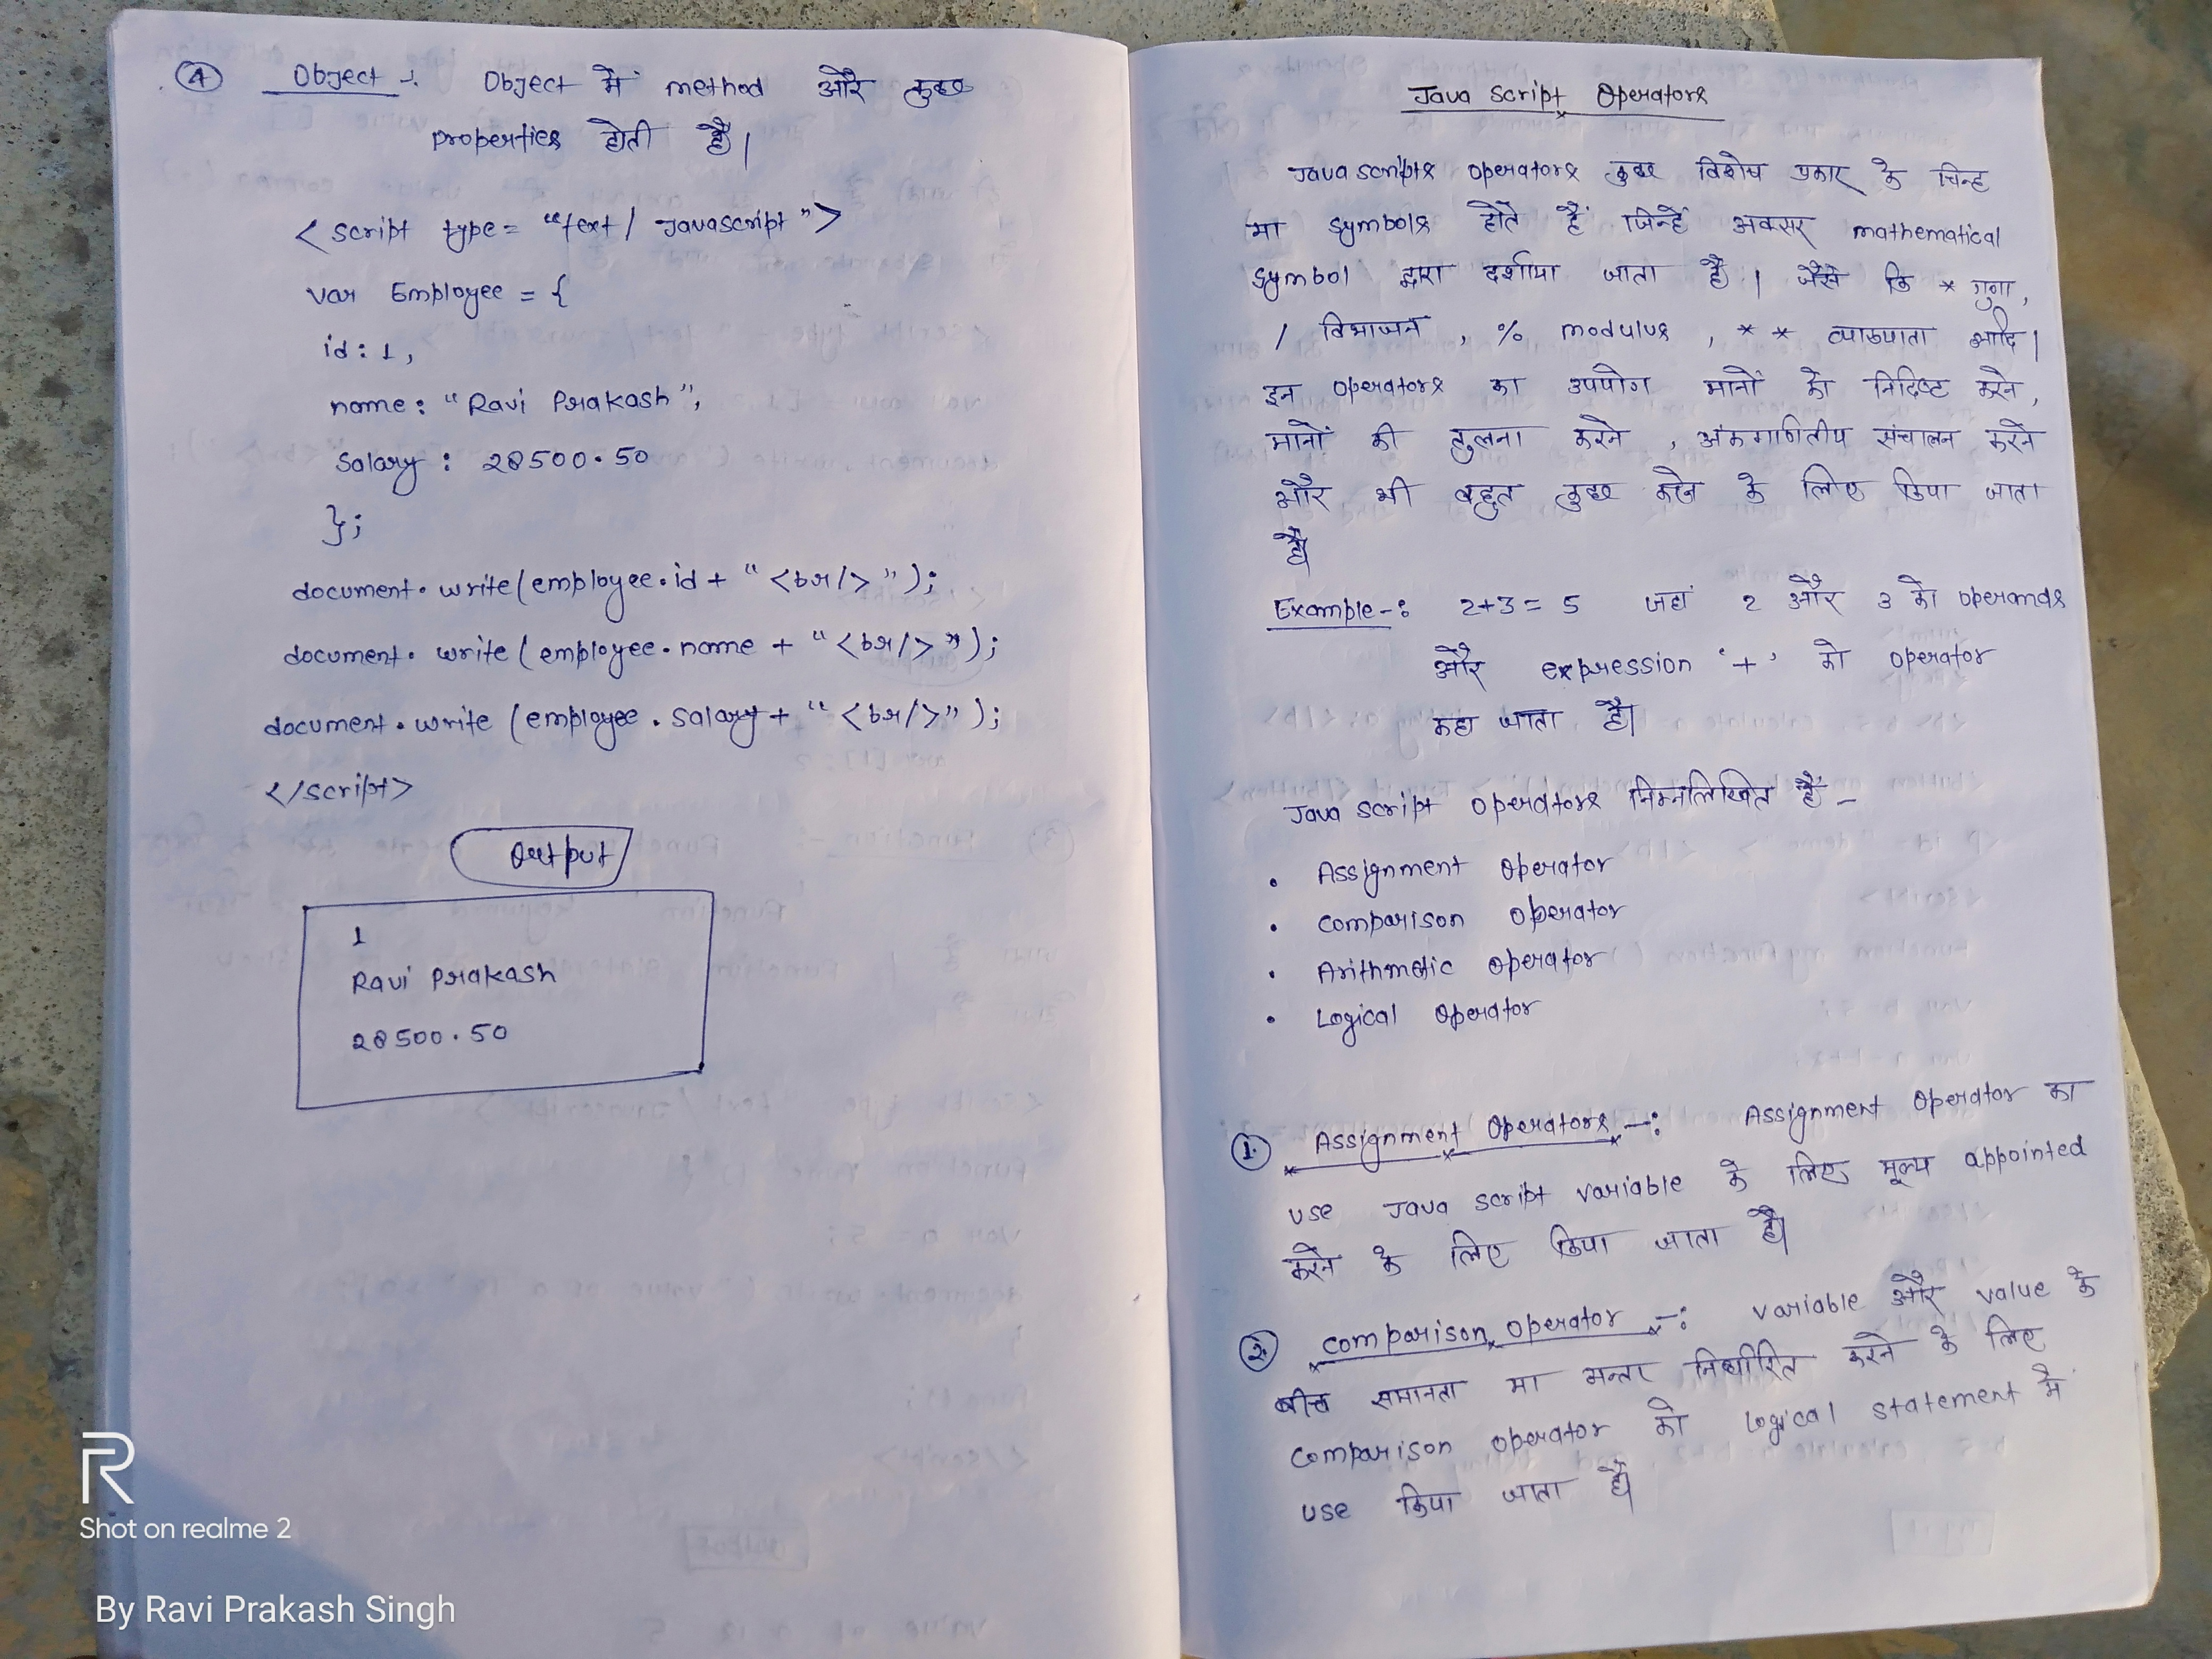 ④ Object -: Object में method और कुछ
properties होती है।
<script type = "text / Javascript">
var Employee = {
id: 1,
name: "Ravi Prakash",
Salary: 28500.50
};
document.write(employee.id + "<br/>");
document.write(employee.name + "<br/>");
document.write(employee.salary + "<br/>");
</script>
Output
1
Ravi Prakash
28500.50
Java Script Operators
Java scripts operators कुछ विशेष प्रकार के चिन्ह
या symbols होते हैं जिन्हें अक्सर mathematical
symbol द्वारा दर्शाया जाता है। जैसे कि * गुणा,
/ विभाजन, % modulus, **  आदि।
इन operators का उपयोग मानों को निर्दिष्ट करने,
मानों की तुलना करने, अंकगणितीय संचालन करने
और भी बहुत कुछ करने के लिए किया जाता
है।
Example -: 2+3=5 जहां 2 और 3 को operands
और expression '+' को operator
कहा जाता है।
Java script operators निम्नलिखित हैं -
• Assignment operator
• Comparison operator
• Arithmetic operator
• Logical operator
① Assignment Operators -: Assignment operator का
use Java script variable के लिए मूल्य appointed
करने के लिए किया जाता है।
② Comparison operator -: variable और value के
बीच समानता या अन्तर निर्धारित करने के लिए
comparison operator को logical statement में
use किया जाता है।
R
Shot on realme 2
By Ravi Prakash Singh